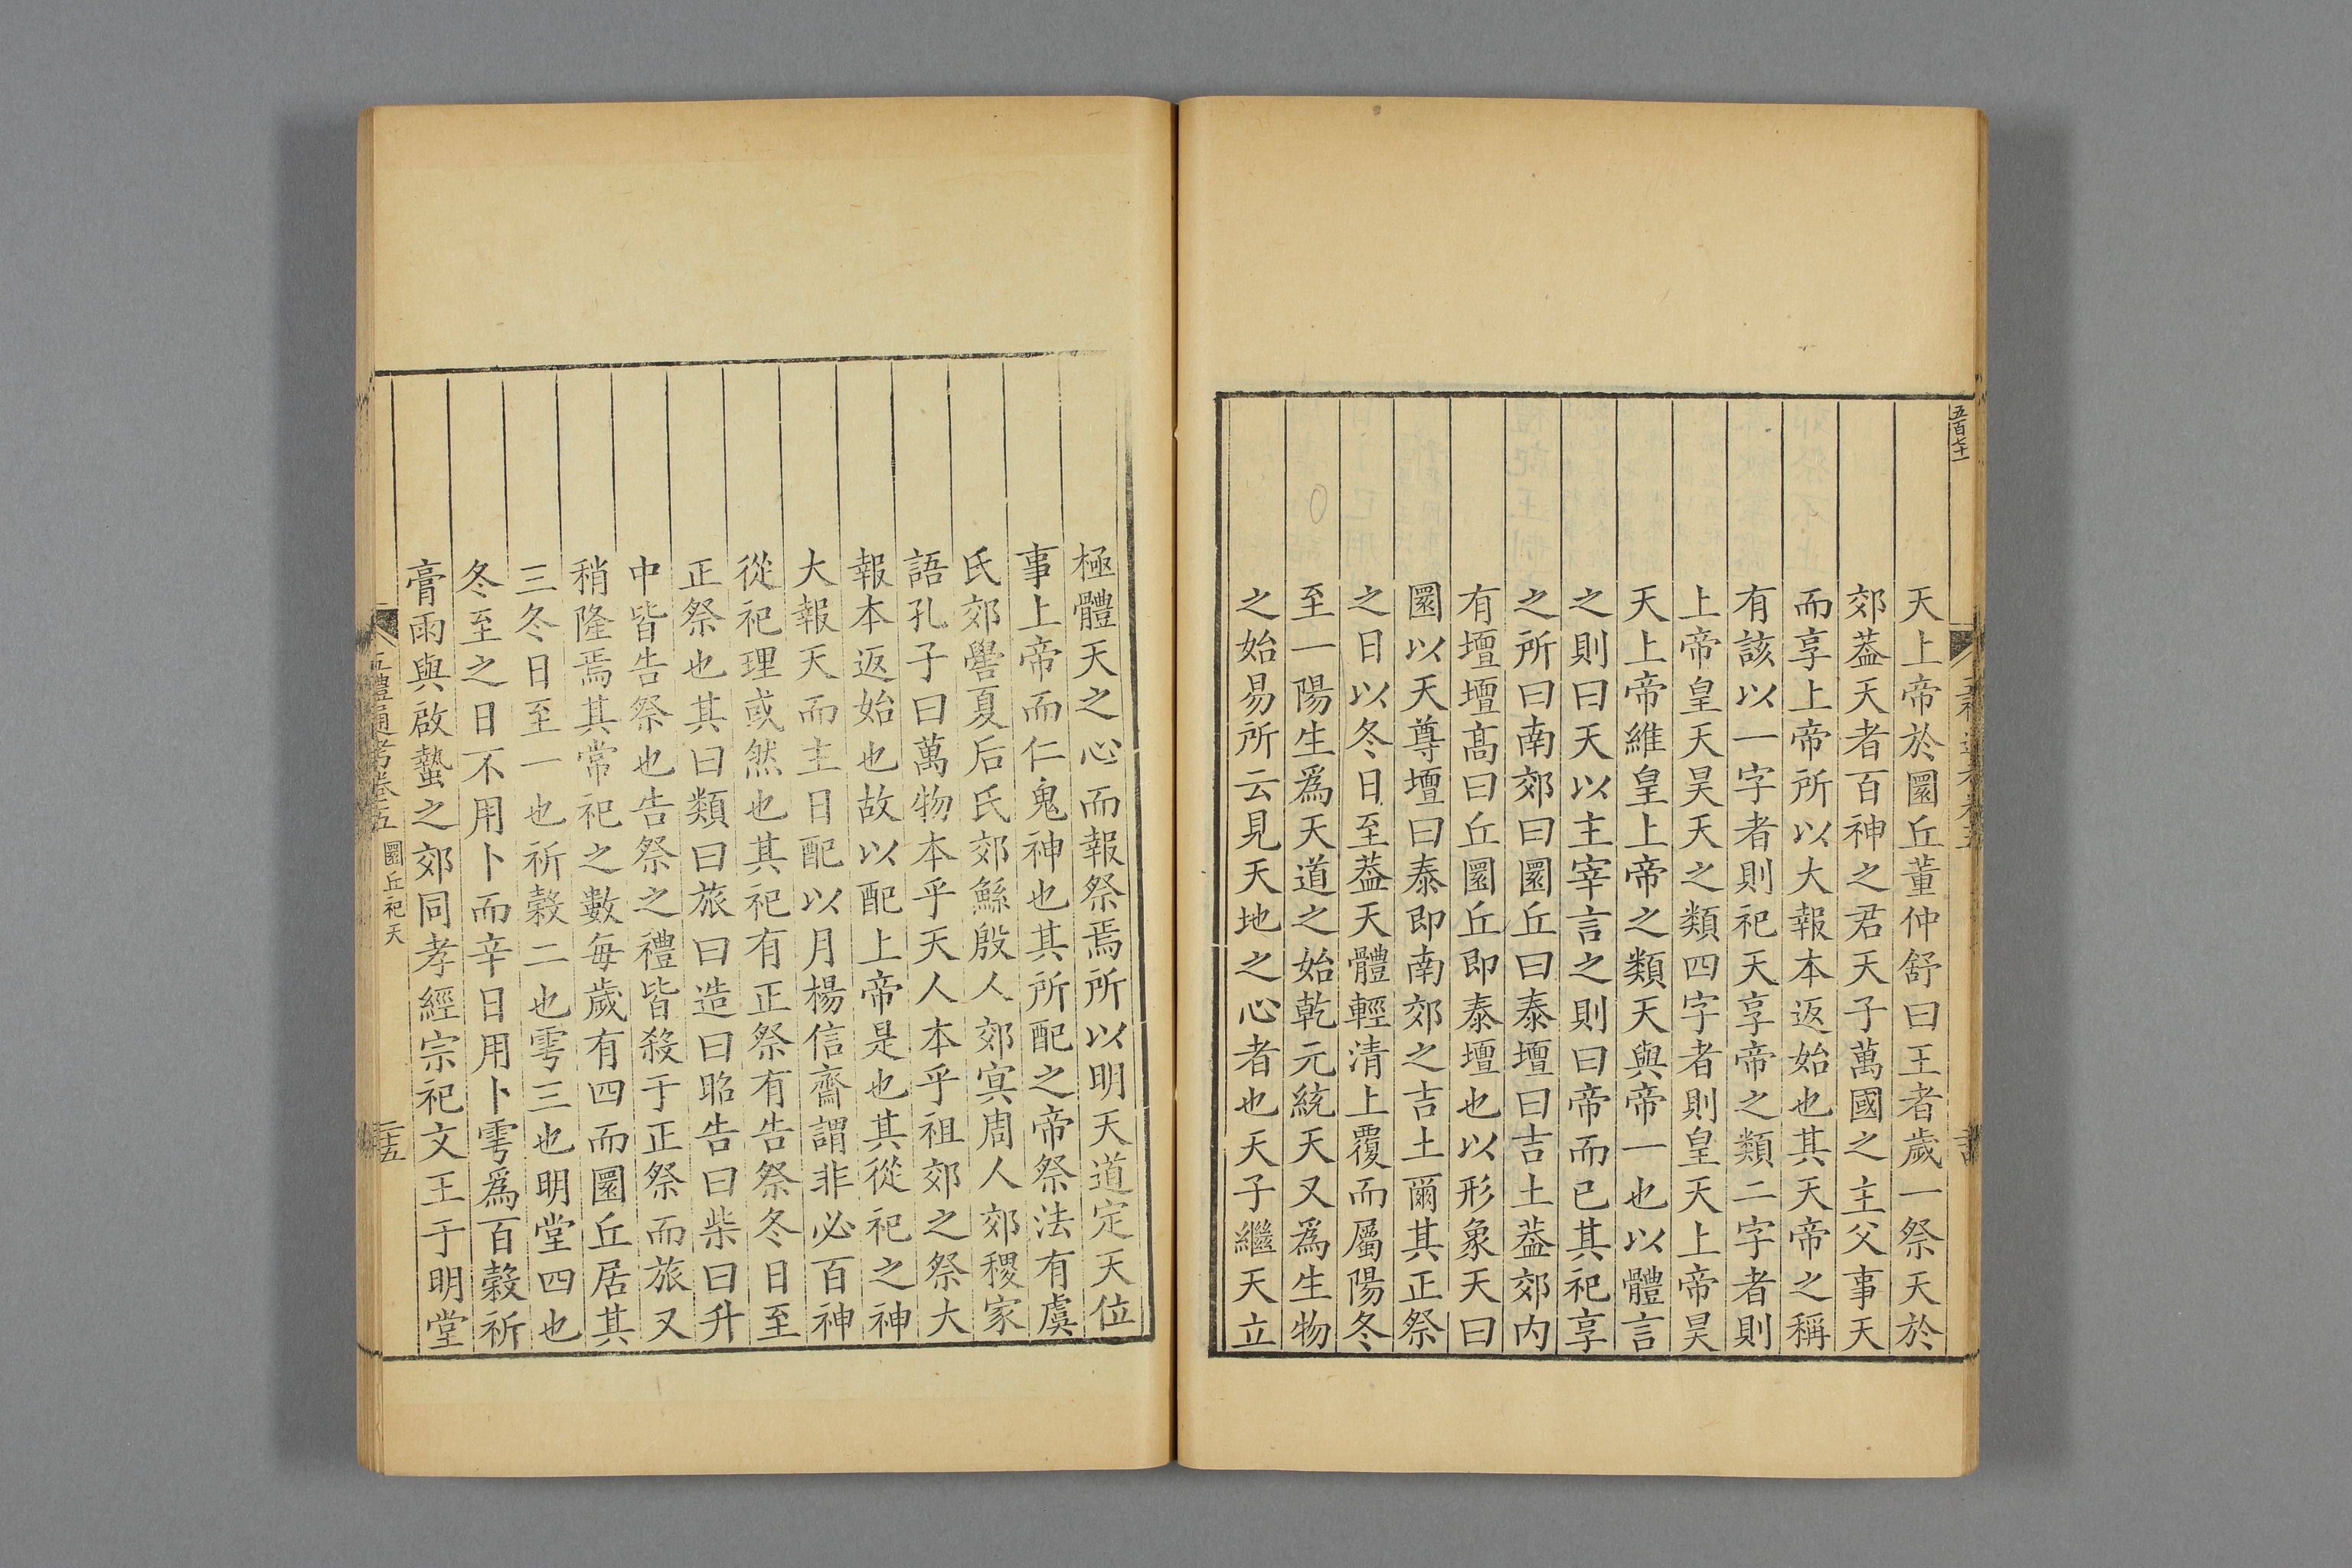 五百七十一
天上帝於圜丘董仲舒曰王者歲一祭天於
郊葢天者百神之君天子萬國之主父事天
而享上帝所以大報本返始也其天帝之稱
有該以一字者則祀天享帝之類二字者則
上帝皇天昊天之類四字者則皇天上帝昊
天上帝維皇上帝之類天與帝一也以體言
之則曰天以主宰言之則曰帝而已其祀享
之所曰南郊曰圜丘曰泰壇曰吉土葢郊内
有壇壇髙曰丘圜丘即泰壇也以形象天曰
圜以天尊壇曰泰即南郊之吉土爾其正祭
之日以冬日至葢天體輕清上覆而屬陽冬
至一陽生爲天道之始乾元統天又爲生物
之始易所云見天地之心者也天子繼天立
極體天之心而報祭焉所以明天道定天位
事上帝而仁鬼神也其所配之帝祭法有虞
氏郊嚳夏后氏郊鯀殷人郊冥周人郊稷家
語孔子曰萬物本乎天人本乎祖郊之祭大
報本返始也故以配上帝是也其從祀之神
大報天而主日配以月楊信齋謂非必百神
從祀理或然也其祀有正祭有告祭冬日至
正祭也其曰類曰旅曰造曰昭告曰柴曰升
中皆告祭也告祭之禮皆殺于正祭而旅又
稍隆焉其常祀之數每歲有四而圜丘居其
三冬日至一也祈榖二也雩三也明堂四也
冬至之日不用卜而辛日用卜雩爲百榖祈
膏雨與啟蟄之郊同孝經宗祀文王于明堂
五禮通考卷五 圜丘祀天
二十五